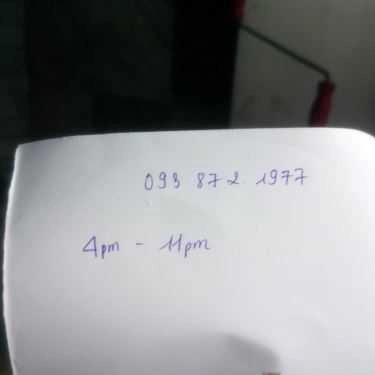 093 872 1977
4pm - 11pm